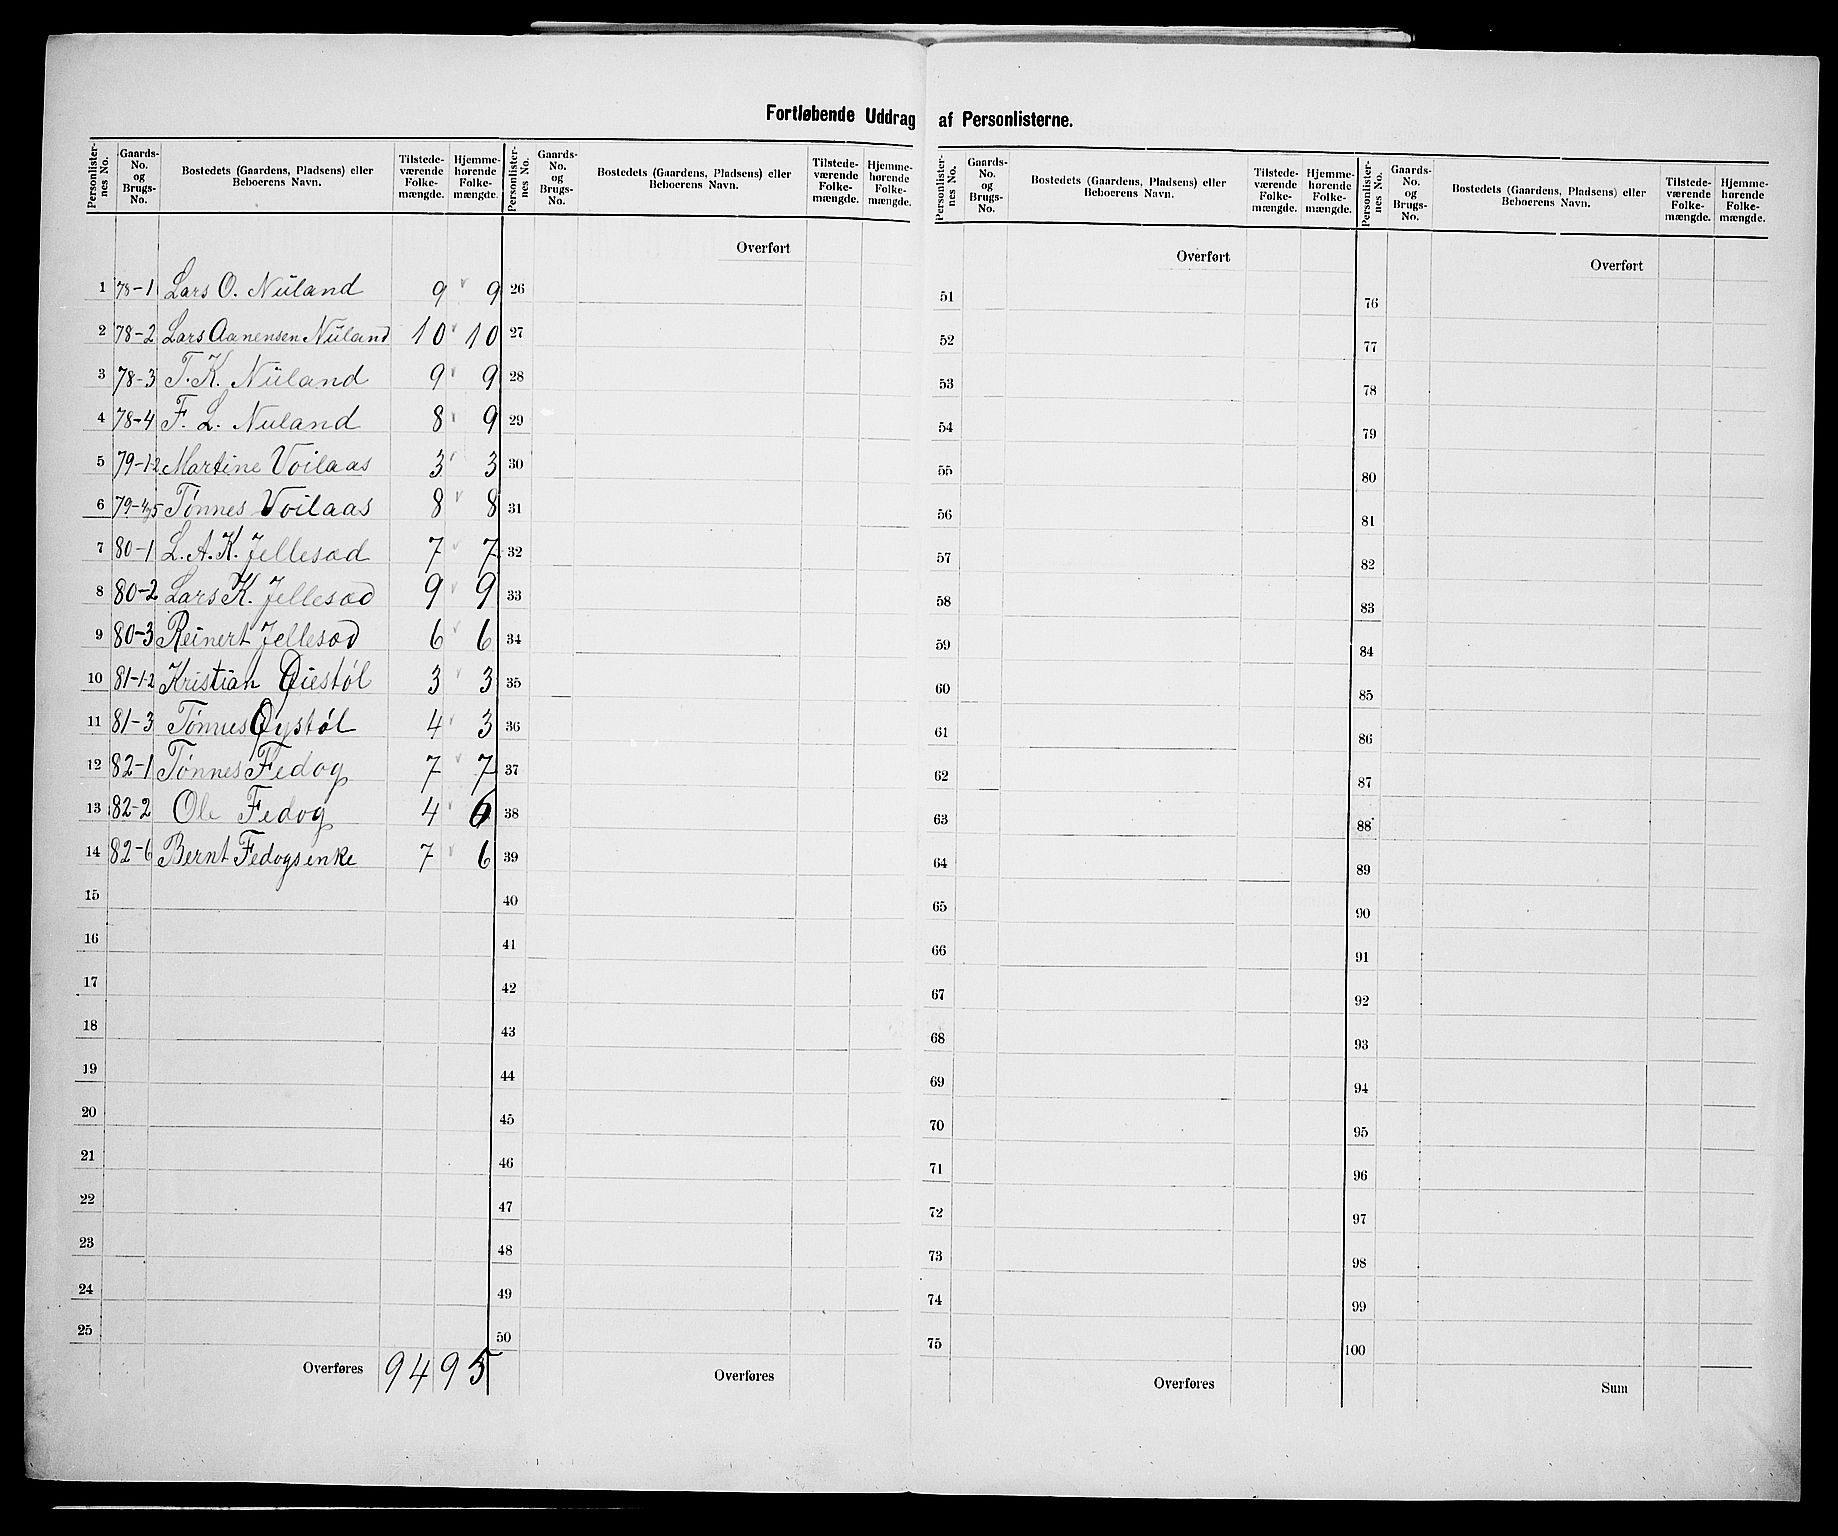 Fortløbende Uddrag af Personlisterne.
Personlister-nes No. Gaards-No. og Brugs-No. Bostedets (Gaardens, Pladsens) eller Beboerens Navn. Tilstede-værende Folke-mængde. Hjemme-hørende Folke-mængde. Personlister-nes No. Gaards-No. og Brugs-No. Bostedets (Gaardens, Pladsens) eller Beboerens Navn. Tilstede-værende Folke-mængde. Hjemme-hørende Folke-mængde. Personlister-nes No. Gaards-No. og Brugs-No. Bostedets (Gaardens, Pladsens) eller Beboerens Navn. Tilstede-værende Folke-mængde. Hjemme-hørende Folke-mængde. Personlister-nes No. Gaards-No. og Brugs-No. Bostedets (Gaardens, Pladsens) eller Beboerens Navn. Tilstede-værende Folke-mængde. Hjemme-hørende Folke-mængde.
Overført Overført Overført
1 78-1 Lars O. Nüland 9 9 26 51 76
2 78-2 Lars Aanensen Nüland 10 10 27 52 77
3 78-3 T. K. Nüland 9 9 28 53 78
4 78-4 F. L. Nuland 8 9 29 54 79
5 79-1-2 Martine Voilaas 3 3 30 55 80
6 79-4,5 Tønnes Voilaas 8 8 31 56 81
7 80-1 L. A. K. Jellesæd 7 7 32 57 82
8 80-2 Lars K. Jellesæd 9 9 33 58 83
9 80-3 Reinert Jellesæd 6 6 34 59 84
10 81-1-2 Kristian Øiestøl 3 3 35 60 85
11 81-3 Tønnes Øystøl 4 3 36 61 86
12 82-1 Tønnes Fedog 7 7 37 62 87
13 82-2 Ole Fedog 4 6 38 63 88
14 82-6 Bernt Fedogsenke 7 6 39 64 89
15 40 65 90
16 41 66 91
17 42 67 92
18 43 68 93
19 44 69 94
20 45 70 95
21 46 71 96
22 47 72 97
23 48 73 98
24 49 74 99
25 50 75 100
Overføres 94 95 Overføres Overføres Sum